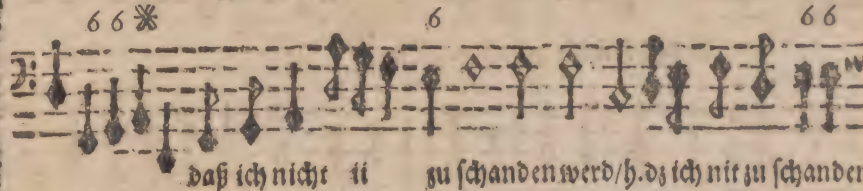 6 6 6 6 6
daß ich nicht ii zu schanden werd/h.dz ich nit zu schanden